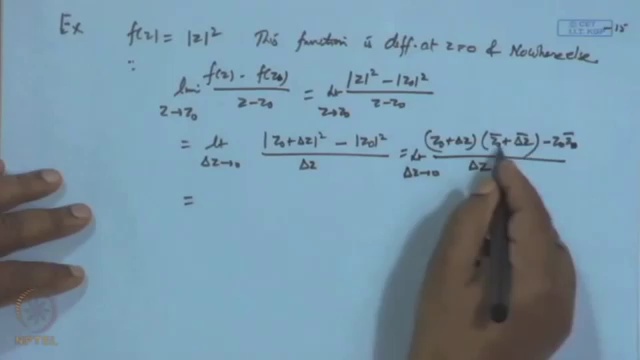 Ex f(z) = |z|² This function is diff. at z=0 & Nowhere else.
∵ lim z→z₀ (f(z) - f(z₀))/(z - z₀) = lt z→z₀ (|z|² - |z₀|²)/(z - z₀)
= lt Δz→0 (|z₀+Δz|² - |z₀|²)/Δz = lt Δz→0 ((z₀+Δz)(z̄₀+Δ̄z̄) - z₀z̄₀)/Δz
=
NPTEL